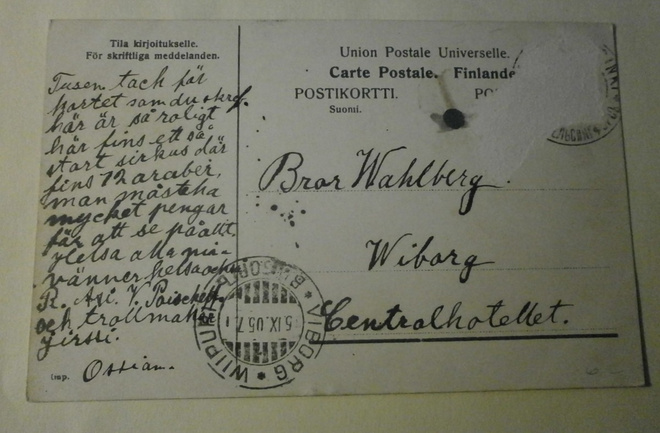 Tila kirjoitukselle.
För skriftliga meddelanden.
Tusen tack för
kortet som du skref.
här är så roligt
här fins ett så
stort sirkus där
fins 12 araber,
man måste ha
mycket pengar
för att se på allt
helsa alla mi-
vänner helsa
R. Axi. V.
och trollmakr
Jirssi.
Ossian.
Imp.
Union Postale Universelle.
Carte Postale. Finlande
POSTIKORTTI. PO
Suomi.
Bror Wahlberg.
Wiborg
Centralhotellet.
WIIPURI * VIBORG *
5.IX.05.7